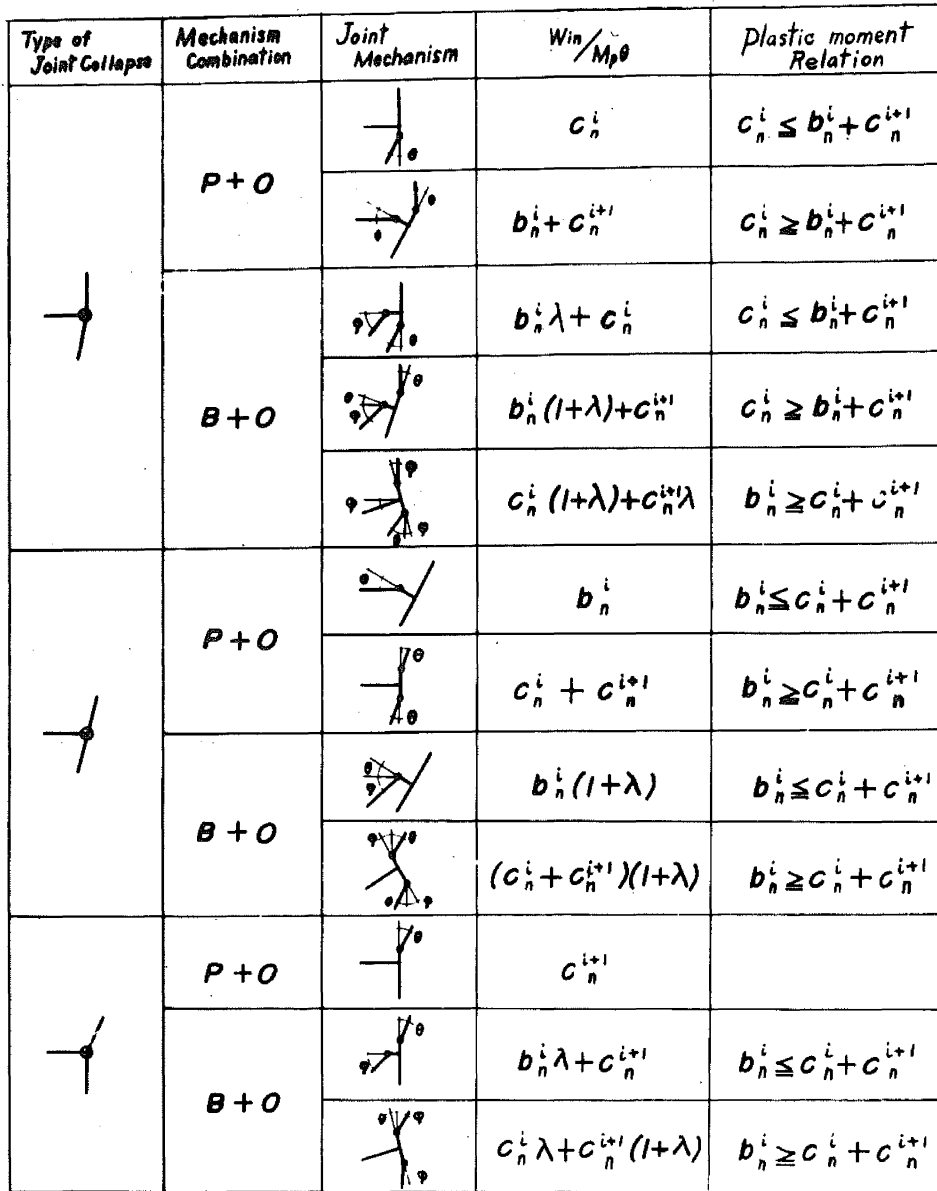 Type of Joint Collapse
Mechanism Combination
Joint Mechanism
Win/Mpθ
Plastic moment Relation
P+O
θ
c_n^i
c_n^i ≦ b_n^i + c_n^{i+1}
θ
θ
b_n^i + c_n^{i+1}
c_n^i ≧ b_n^i + c_n^{i+1}
B+O
φ
θ
b_n^i λ + c_n^i
c_n^i ≦ b_n^i + c_n^{i+1}
θ
θ
φ
b_n^i (1+λ) + c_n^{i+1}
c_n^i ≧ b_n^i + c_n^{i+1}
φ
φ
θ
φ
c_n^i (1+λ) + c_n^{i+1} λ
b_n^i ≧ c_n^i + c_n^{i+1}
P+O
θ
b_n^i
b_n^i ≦ c_n^i + c_n^{i+1}
θ
θ
c_n^i + c_n^{i+1}
b_n^i ≧ c_n^i + c_n^{i+1}
B+O
θ
φ
b_n^i (1+λ)
b_n^i ≦ c_n^i + c_n^{i+1}
φ
θ
θ
φ
(c_n^i + c_n^{i+1})(1+λ)
b_n^i ≧ c_n^i + c_n^{i+1}
P+O
θ
c_n^{i+1}
B+O
θ
φ
b_n^i λ + c_n^{i+1}
b_n^i ≦ c_n^i + c_n^{i+1}
θ
φ
φ
c_n^i λ + c_n^{i+1} (1+λ)
b_n^i ≧ c_n^i + c_n^{i+1}